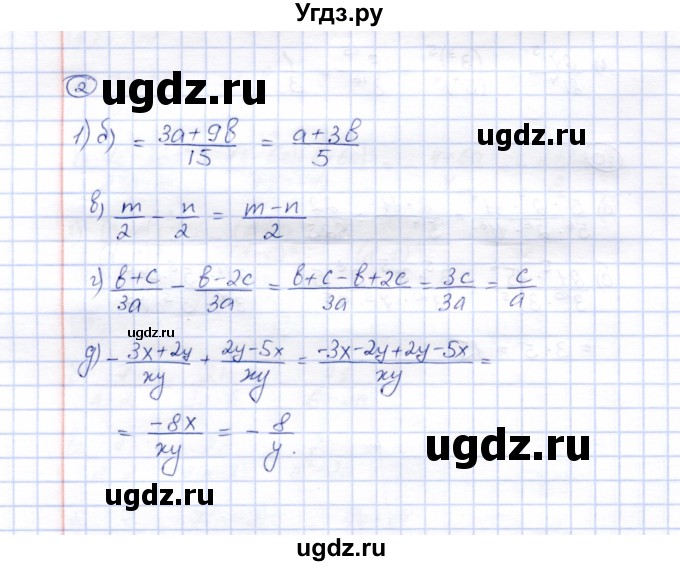 Угдз.ру
2
ugdz.ru
1) б) = (3a+9в)/15 = (a+3в)/5
в) m/2 - n/2 = (m-n)/2
г) (в+c)/3a - (в-2c)/3a = (в+c-в+2c)/3a = 3c/3a = c/a
ugdz.ru
д) - (3x+2y)/xy + (2y-5x)/xy = (-3x-2y+2y-5x)/xy =
= -8x/xy = - 8/y.
ugdz.ru
ugdz.ru
ugdz.ru